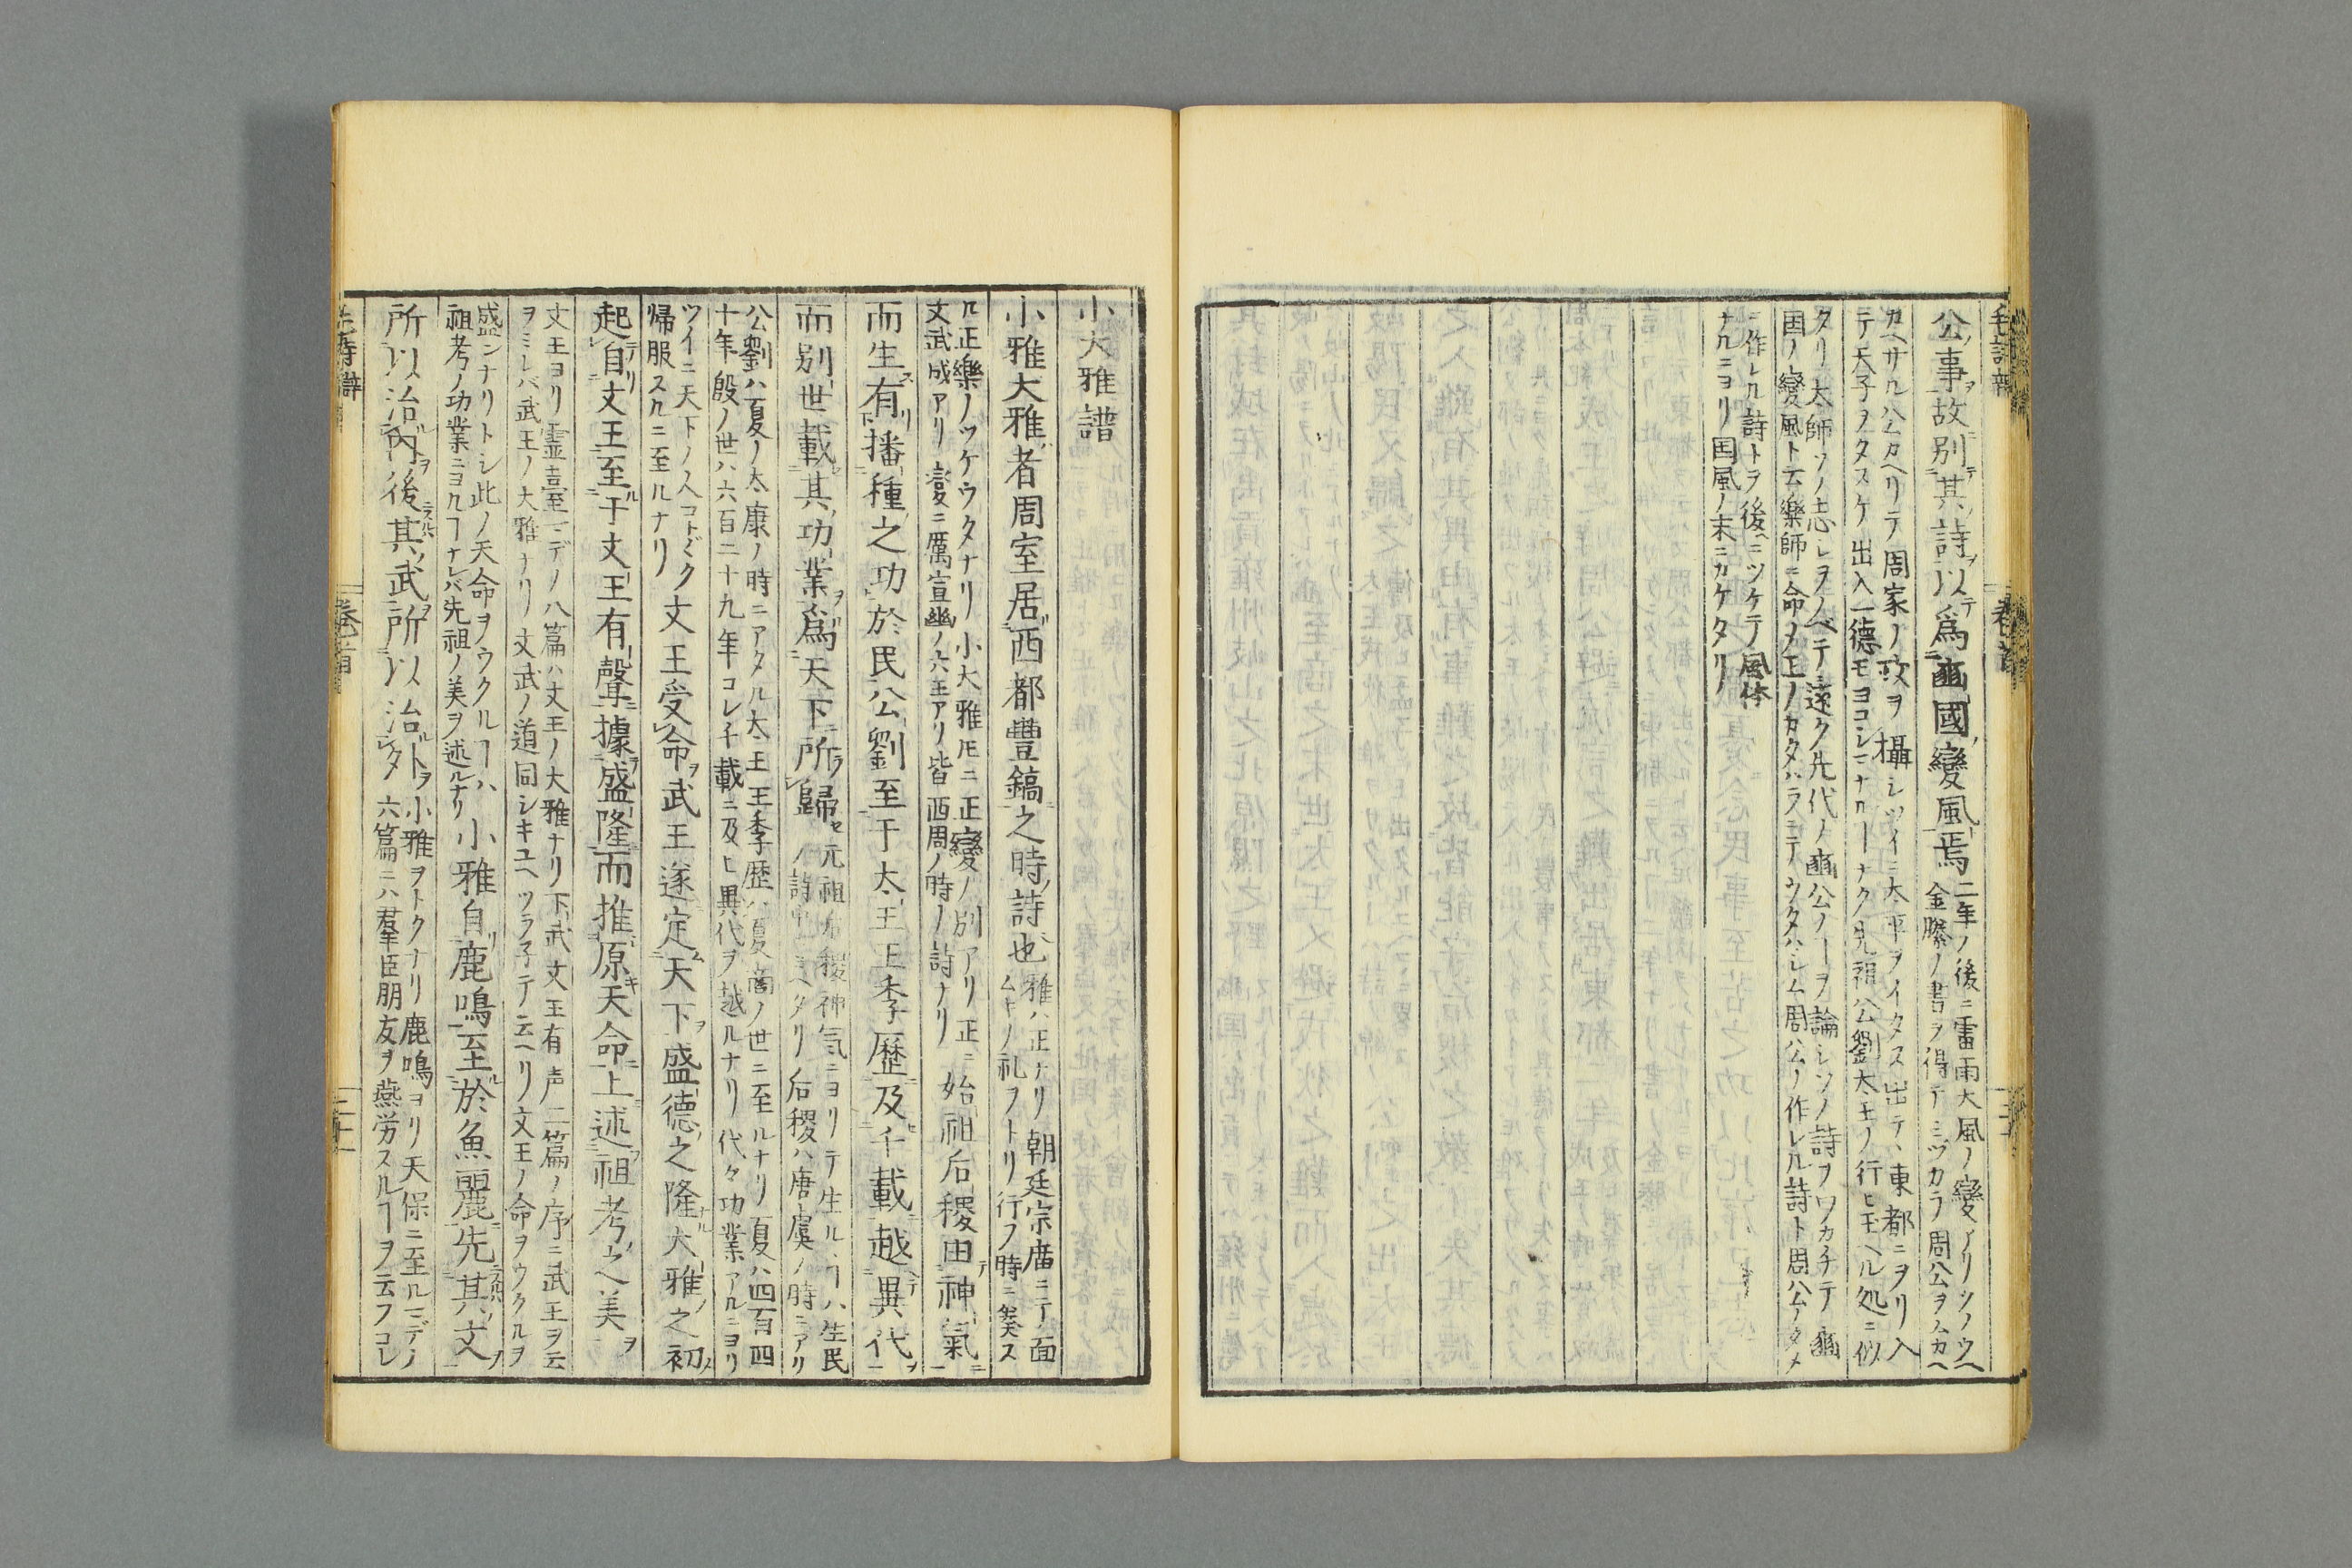 毛詩辯 卷首
公事故別其詩以爲豳國變風焉
二年ノ後ニ雷雨大風ノ變アリソノウヘ
金縢ノ書ヲ得テミヅカラ周公ヲムカヘ
カヘサル公カヘリテ周家ノ政ヲ攝シツイニ太平ヲイタス出テハ東都ニヲリ入
テ天子ヲタスケ出入一德モヨコシマナルヿナク先祖公劉太王ノ行ヒ玉ヘル処ニ似
タリ太師ソノ志シヲノベテ遠ク先代ノ豳公ノヿヲ論シソノ詩ヲワカチテ豳
国ノ變風ト云樂師ニ命メ正ノカタハラニテウタハシム周公ノ作レル詩ト周公ノタメ
ニ作レル詩トヲ後ニツケテ風体
ナルニヨリ国風ノ末ニカケタリ
小大雅譜
小雅大雅者周室居西都豐鎬之時詩也
雅ハ正ナリ朝廷宗庿ニテ面
ムキノ礼フトリ行フ時ニ奏ス
ル正樂ノツケウタナリ小大雅𪜈ニ正變ノ別アリ正ニ
文武成アリ變ニ厲宣幽ノ六王アリ皆西周ノ時ノ詩ナリ
始祖后稷由神氣
而生有播種之功於民公劉至于太王王季歷及千載越異代
而別世載其功業爲天下所歸
元祖后稷神気ニヨリテ生ルヽヿハ生民
ノ詩中ニミヘタリ后稷ハ唐虞ノ時ニアリ
公劉ハ夏ノ太康ノ時ニアタル太王王季歴ハ夏商ノ世ニ至ルナリ夏ハ四百四
十年殷ノ世ハ六百二十九年コレ千載ニ及ヒ異代ヲ越ルナリ代々功業アルニヨリ
ツイニ天下ノ人コトゴトク
帰服スルニ至ルナリ
文王受命武王遂定天下盛德之隆大雅之初
起自文王至于文王有聲據盛隆而推原天命上述祖考之美
文王ヨリ霊臺マデノ八篇ハ文王ノ大雅ナリ下武文王有声二篇ノ序ニ武王ヲ云
ヲミレバ武王ノ大雅ナリ文武ノ道同シキユヘツラネテ云ヘリ文王ノ命ヲウクルヲ
盛ンナリトシ此ノ天命ヲウクルヿハ
祖考ノ功業ニヨルヿナレバ先祖ノ美ヲ述ルナリ
小雅自鹿鳴至於魚麗先其文
所以治內後其武所以治外
小雅ヲトクナリ鹿鳴ヨリ天保ニ至ルマデノ
六篇ニハ羣臣朋友ヲ燕労スルヿヲ云フコレ
毛詩辯 卷首